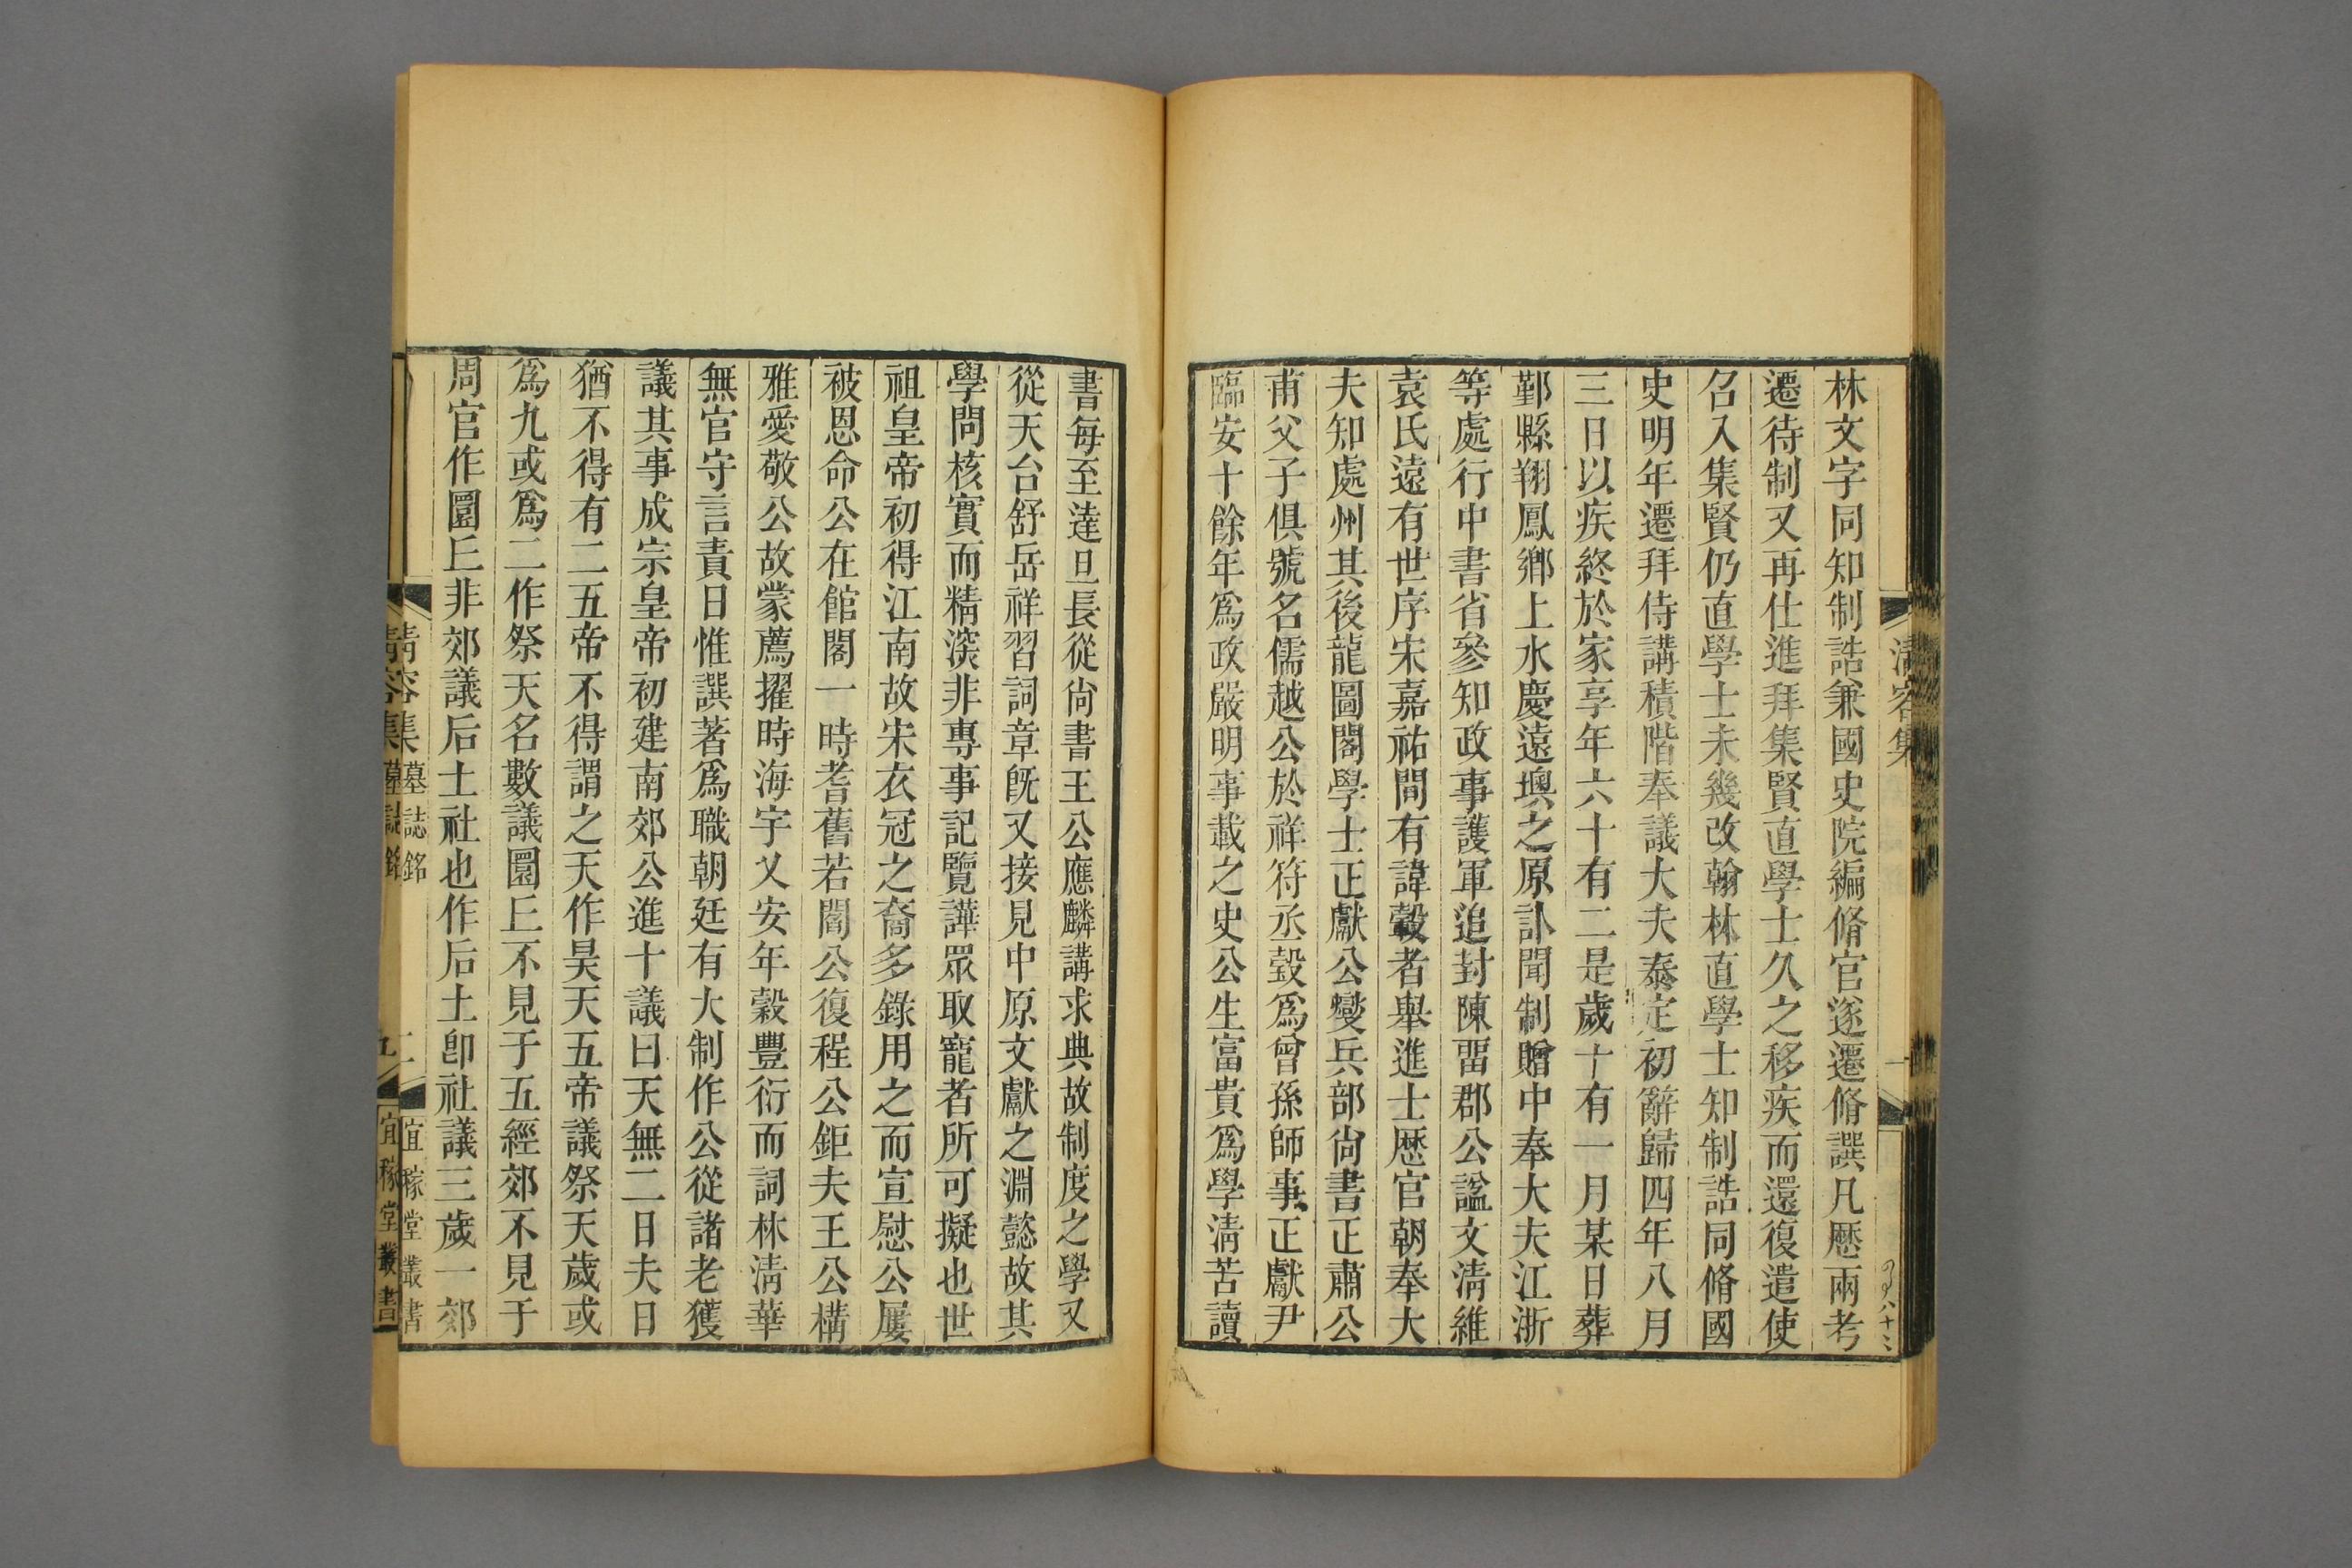 林文字同知制誥兼國史院編脩官遂遷脩譔凡厯兩考
遷待制又再仕進拜集賢直學士久之移疾而還復遣使
召入集賢仍直學士未幾改翰林直學士知制誥同脩國
史明年遷拜侍講積階奉議大夫泰定初辭歸四年八月
三日以疾終於家享年六十有二是歲十有一月某日葬
鄞縣翔鳳鄉上水慶遠墺之原訃聞制贈中奉大夫江浙
等處行中書省參知政事護軍追封陳畱郡公諡文淸維
袁氏遠有世序宋嘉祐間有諱轂者舉進士厯官朝奉大
夫知處州其後龍圖閣學士正獻公燮兵部尙書正肅公
甫父子俱號名儒越公於祥符丞瑴爲曾孫師事正獻尹
臨安十餘年爲政嚴明事載之史公生富貴爲學淸苦讀
書每至達旦長從尙書王公應麟講求典故制度之學又
從天台舒岳祥習詞章旣又接見中原文獻之淵懿故其
學問核實而精深非專事記覽譁眾取寵者所可擬也世
祖皇帝初得江南故宋衣冠之裔多錄用之而宣慰公屢
被恩命公在館閣一時耆舊若閻公復程公鉅夫王公構
雅愛敬公故蒙薦擢時海宇乂安年穀豐衍而詞林淸華
無官守言責日惟譔著爲職朝廷有大制作公從諸老獲
議其事成宗皇帝初建南郊公進十議曰天無二日夫日
猶不得有二五帝不得謂之天作昊天五帝議祭天歲或
爲九或爲二作祭天名數議圜丘不見于五經郊不見于
周官作圜丘非郊議后土社也作后土卽社議三歲一郊
淸容集
墓誌銘
二
宜稼堂叢書
淸容集
一
淸容集
墓誌銘
九
宜稼堂叢書